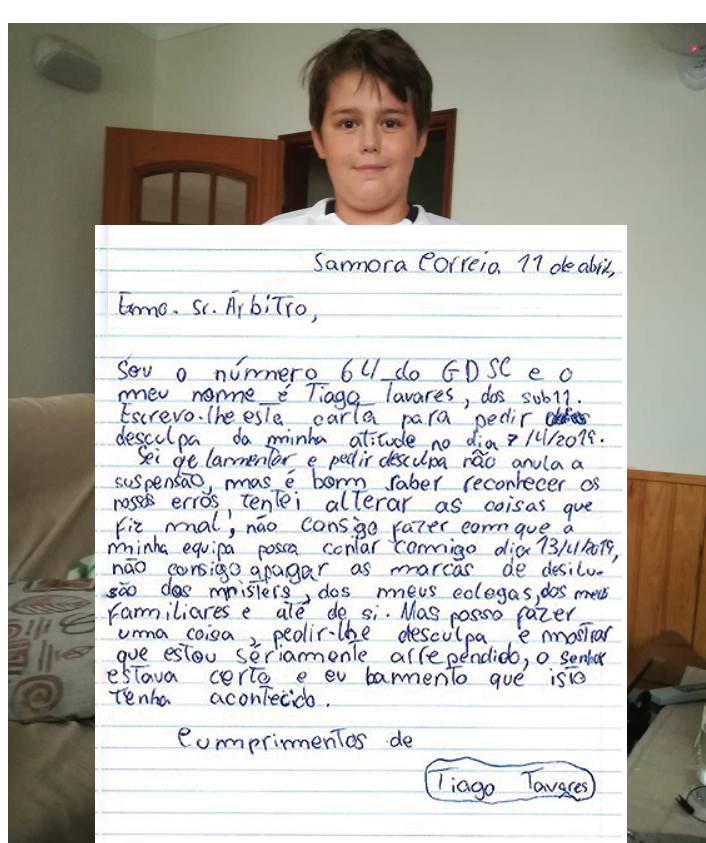 Samora Correia 11 de abril,
Exmo. Sr. Árbitro,
Sou o número 64 do GDSC e o
meu nome é Tiago Tavares, dos sub11.
Escrevo-lhe esta carta para pedir
desculpa da minha atitude no dia 7/4/2019.
Sei qe lamentar e pedir desculpa não anula a
suspensão, mas é bom saber reconhecer os
nossos erros, tentei alterar as coisas que
fiz mal, não consigo fazer com que a
minha equipa possa contar commigo dia 13/4/2019,
não consigo apagar as marcas de desilu-
são dos misters, dos meus colegas, dos meus
familiares e até de si. Mas posso fazer
uma coisa, pedir-lhe desculpa e mostrar
que estou sériamente arrependido, o senhor
estava certo e eu lamento que isto
tenha acontecido.
Cumprimentos de
Tiago Tavares